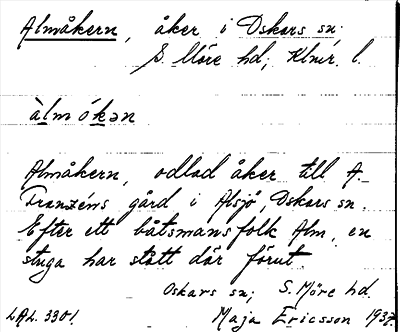 Almåkern, åker i Oskars sn;
S. Möre hd; Klmr. l.
àlmókən
Almåkern, odlad åker till A.
Franzéns gård i Alsjö, Oskars sn.
Efter ett båtsmansfolk Alm, en
stuga har stått där förut.
Oskars sn; S. Möre hd.
LAL. 3301. Maja Ericsson 1937.